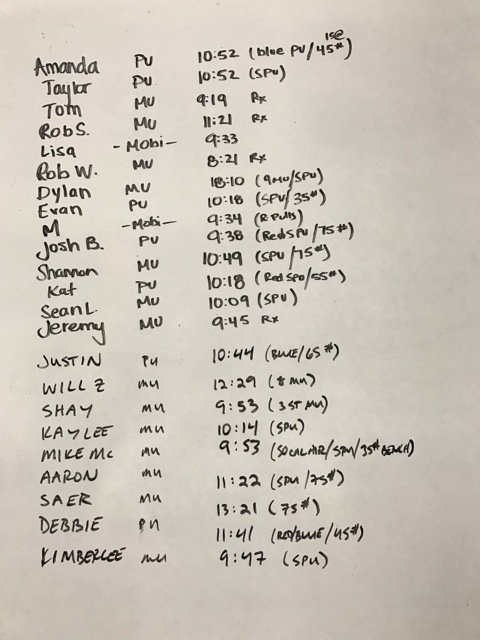 Amanda PU 10:52 (blue PU/45#) 15@
Taylor PU 10:52 (SPU)
Tom MU 9:19 Rx
Rob S. MU 11:21 Rx
Lisa -Mobi- 9:33
Rob W. MU 8:21 Rx
Dylan MU 10:10 (9MU/SPU)
Evan PU 10:18 (SPU/35#)
M -Mobi- 9:34 (R-Pulls)
Josh B. PU 9:38 (Red SPU/75#)
Shannon MU 10:49 (SPU/75#)
Kat PU 10:18 (Red SPU/55#)
Sean L. MU 10:09 (SPU)
Jeremy MU 9:45 Rx
JUSTIN PU 10:44 (BLUE/65#)
WILL Z MU 12:29 (8 MU)
SHAY MU 9:53 (3 ST MU)
KAYLEE MU 10:14 (SPU)
MIKE MC MU 9:53 (/SPU/35# BENCH)
AARON MU 11:22 (SPU/75#)
SAER MU 13:21 (75#)
DEBBIE PU 11:41 (RED/BLUE/45#)
KIMBERLEE MU 9:47 (SPU)